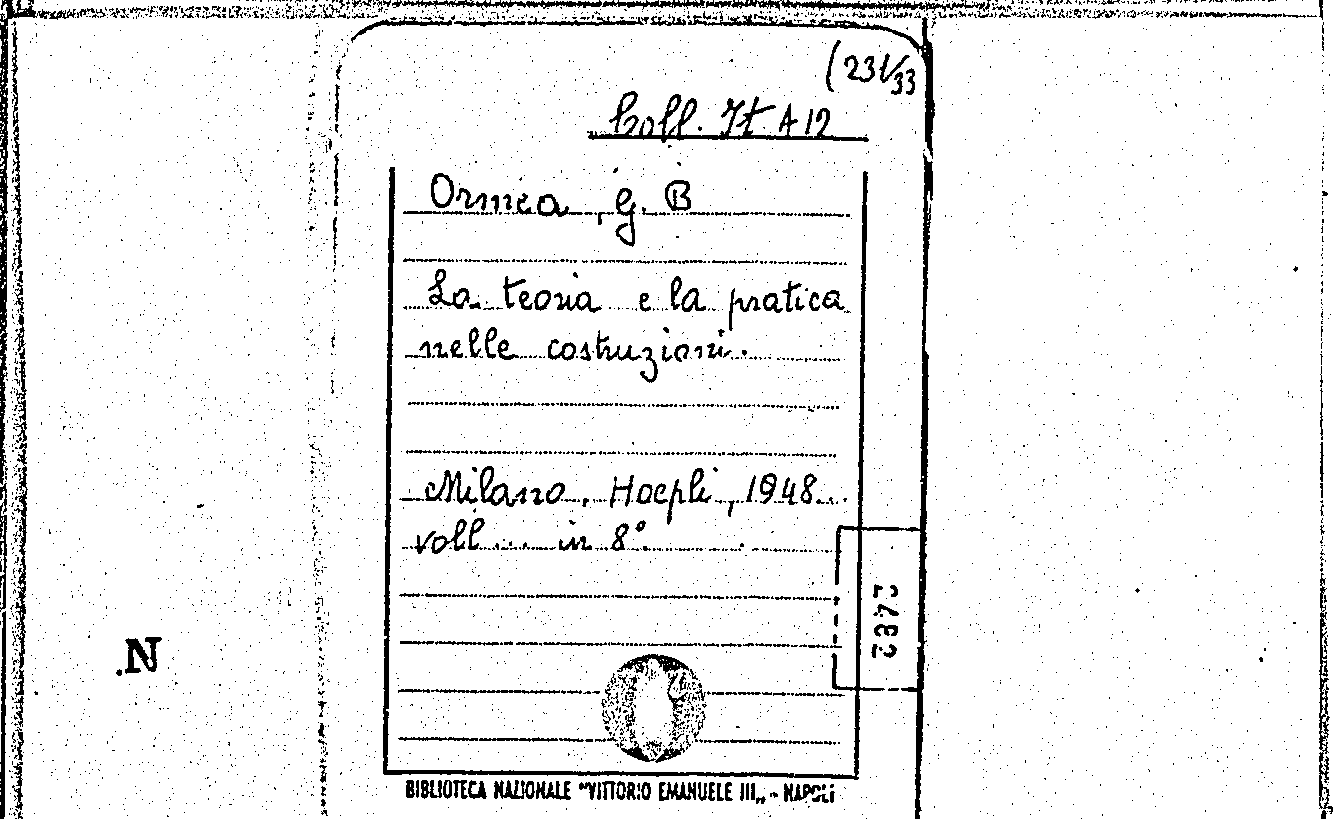 (231/33
Coll. It A 12
Ormea, G. B
La teoria e la pratica
nelle costruzioni.
Milano, Hoepli, 1948...
voll... in 8°.
2482
.N
BIBLIOTECA NAZIONALE "VITTORIO EMANUELE III„ - NAPOLI